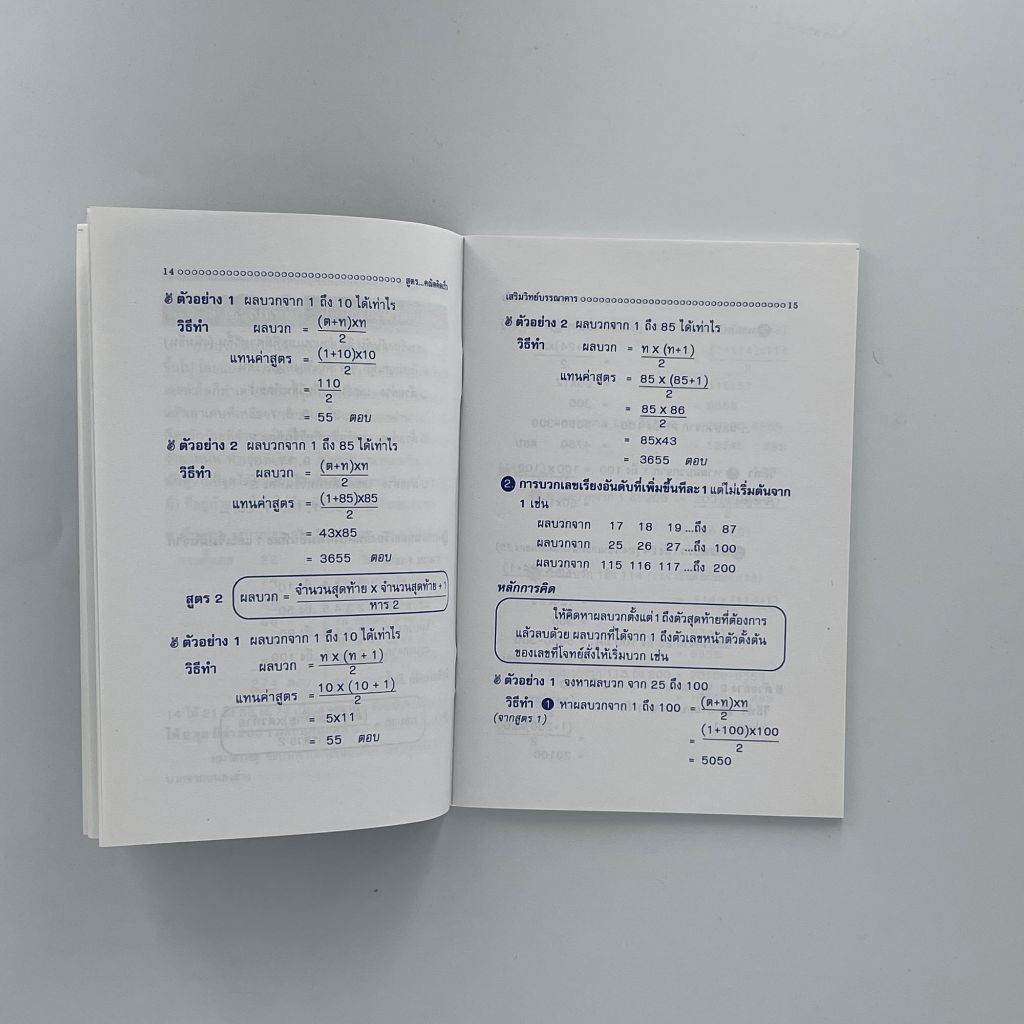 14 สูตร...คณิตคิดเร็ว
ตัวอย่าง 1 ผลบวกจาก 1 ถึง 10 ได้เท่าไร
วิธีทำ ผลบวก = (ต+ท)xท
2
แทนค่าสูตร = (1+10)x10
2
= 110
2
= 55 ตอบ
ตัวอย่าง 2 ผลบวกจาก 1 ถึง 85 ได้เท่าไร
วิธีทำ ผลบวก = (ต+ท)xท
2
แทนค่าสูตร = (1+85)x85
2
= 43x85
= 3655 ตอบ
สูตร 2 ผลบวก = จำนวนสุดท้าย x จำนวนสุดท้าย + 1
หาร 2
ตัวอย่าง 1 ผลบวกจาก 1 ถึง 10 ได้เท่าไร
วิธีทำ ผลบวก = ท x (ท + 1)
2
แทนค่าสูตร = 10 x (10 + 1)
2
= 5x11
= 55 ตอบ
เสริมวิทย์บรรณาคาร 15
ตัวอย่าง 2 ผลบวกจาก 1 ถึง 85 ได้เท่าไร
วิธีทำ ผลบวก = ท x (ท+1)
2
แทนค่าสูตร = 85 x (85+1)
2
= 85 x 86
2
= 85x43
= 3655 ตอบ
2 การบวกเลขเรียงอันดับที่เพิ่มขึ้นทีละ 1 แต่ไม่เริ่มต้นจาก
1 เช่น
ผลบวกจาก 17 18 19 ...ถึง 87
ผลบวกจาก 25 26 27 ...ถึง 100
ผลบวกจาก 115 116 117 ...ถึง 200
หลักการคิด
ให้คิดหาผลบวกตั้งแต่ 1 ถึงตัวสุดท้ายที่ต้องการ
แล้วลบด้วย ผลบวกที่ได้จาก 1 ถึงตัวเลขหน้าตัวตั้งต้น
ของเลขที่โจทย์สั่งให้เริ่มบวก เช่น
ตัวอย่าง 1 จงหาผลบวก จาก 25 ถึง 100
วิธีทำ 1 หาผลบวกจาก 1 ถึง 100 = (ต+ท)xท
(จากสูตร 1) 2
= (1+100)x100
2
= 5050